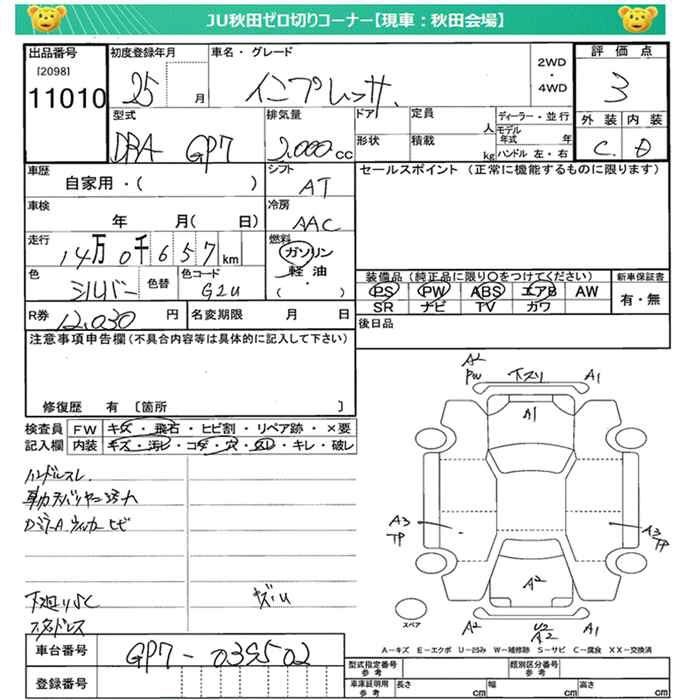 JU秋田ゼロ切りコーナー【現車：秋田会場】
出品番号
[2098]
11010
初度登録年月
25 月
車名・グレード
インプレッサ
2WD
・
4WD
評価点
3
外装 内装
C D
型式
DBA GP7
排気量
2,000 cc
ドア
形状
定員
人
積載
kg
ディーラー・並行
モデル年式 年
ハンドル 左・右
車歴
自家用・( )
シフト
AT
車検
年 月( 日)
冷房
AAC
走行
14万0千657km
燃料
ガソリン
軽油・
( )
色
シルバー
色替
色コード
G2U
R券
12,030 円
名変期限 月 日
セールスポイント (正常に機能するものに限ります)
装備品 (純正品に限り○をつけてください)
PS PW ABS エアB AW
SR ナビ TV カワ
新車保証書
有・無
後日品
注意事項申告欄 (不具合内容等は具体的に記入して下さい)
修復歴 有 〔箇所 〕
検査員記入欄
FW キズ・飛石・ヒビ割・リペア跡・×要
内装 キズ・汚レ・コゲ・穴・スレ・キレ・破レ
ハンドルスレ
Dミラーウィンカーヒビ
下廻りサビ
スタッドレス
A2
PW
下スリ
A1
A1
A3
TP
A3
TP
A2
A2
U2
A2
A1
スペア
A－キズ E－エクボ U－凹み W－補修跡 S－サビ C－腐食 XX－交換済
車台番号
GP7-039502
登録番号
型式指定番号
参考
類別区分番号
参考
車庫証明用
参考
長さ cm
幅 cm
高さ cm